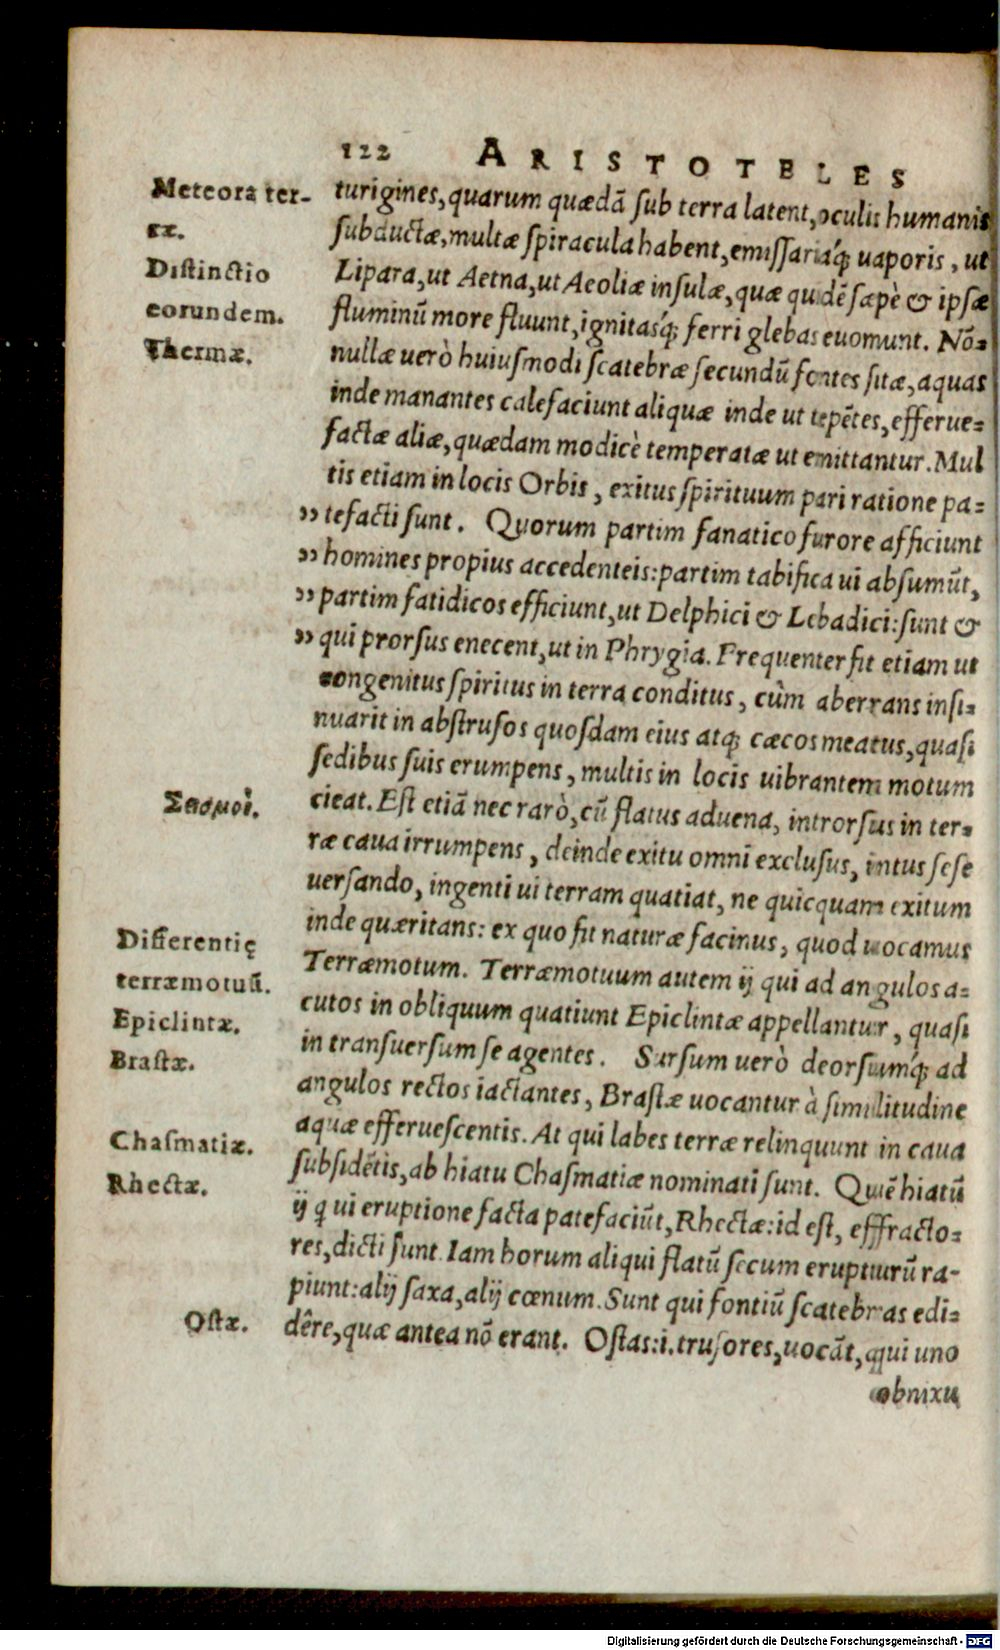 122 ARISTOTELES
Meteora ter-
ræ.
Distinctio
eorundem.
Thermæ.
turigines, quarum quædā sub terra latent, oculis humanis
subductæ, multæ spiracula habent, emissariaq́ꝫ uaporis, ut
Lipara, ut Aetna, ut Aeoliæ insulæ, quæ quidē sæpè & ipsæ
fluminū more fluunt, ignitasq́ꝫ ferri glebas euomunt. Nō=
nullæ uerò huiusmodi scatebræ secundū fontes sitæ, aquas
inde manantes calefaciunt aliquæ inde ut tepētes, efferue=
factæ aliæ, quædam modicè temperatæ ut emittantur. Mul
tis etiam in locis Orbis, exitus spirituum pari ratione pa=
” tefacti sunt. Quorum partim fanatico furore afficiunt
” homines propius accedenteis: partim tabifica ui absumūt,
” partim fatidicos efficiunt, ut Delphici & Lebadici: sunt &
” qui prorsus enecent, ut in Phrygia. Frequenter fit etiam ut
congenitus spiritus in terra conditus, cùm aberrans insi=
nuarit in abstrusos quosdam eius atqꝫ cæcos meatus, quasi
sedibus suis erumpens, multis in locis uibrantem motum
Σεισμοὶ.
cieat. Est etiā nec rarò, cū flatus aduena, introrsus in ter=
ræ caua irrumpens, deinde exitu omni exclusus, intus sese
uersando, ingenti ui terram quatiat, ne quicquam exitum
inde quæritans: ex quo fit naturæ facinus, quod uocamus
Differentię
terræmotuū.
Epiclintæ.
Brastæ.
Terræmotum. Terræmotuum autem ij qui ad angulos a=
cutos in obliquum quatiunt Epiclintæ appellantur, quasi
in transuersum se agentes. Sursum uerò deorsumq́ꝫ ad
angulos rectos iactantes, Brastæ uocantur à similitudine
aquæ efferuescentis. At qui labes terræ relinquunt in caua
Chasmatiæ.
Rhectæ.
subsidētis, ab hiatu Chasmatiæ nominati sunt. Quiē hiatū
ij qui eruptione facta patefaciūt, Rhectæ: id est, effracto=
res, dicti sunt. Iam horum aliqui flatū secum erupturū ra-
piunt: alij saxa, alij cœnum. Sunt qui fontiū scatebras edi=
Ostæ.
dêre, quæ antea nō erant. Ostas: i. trusores, uocāt, qui uno
obnixu
Digitalisierung gefördert durch die Deutsche Forschungsgemeinschaft - DFG